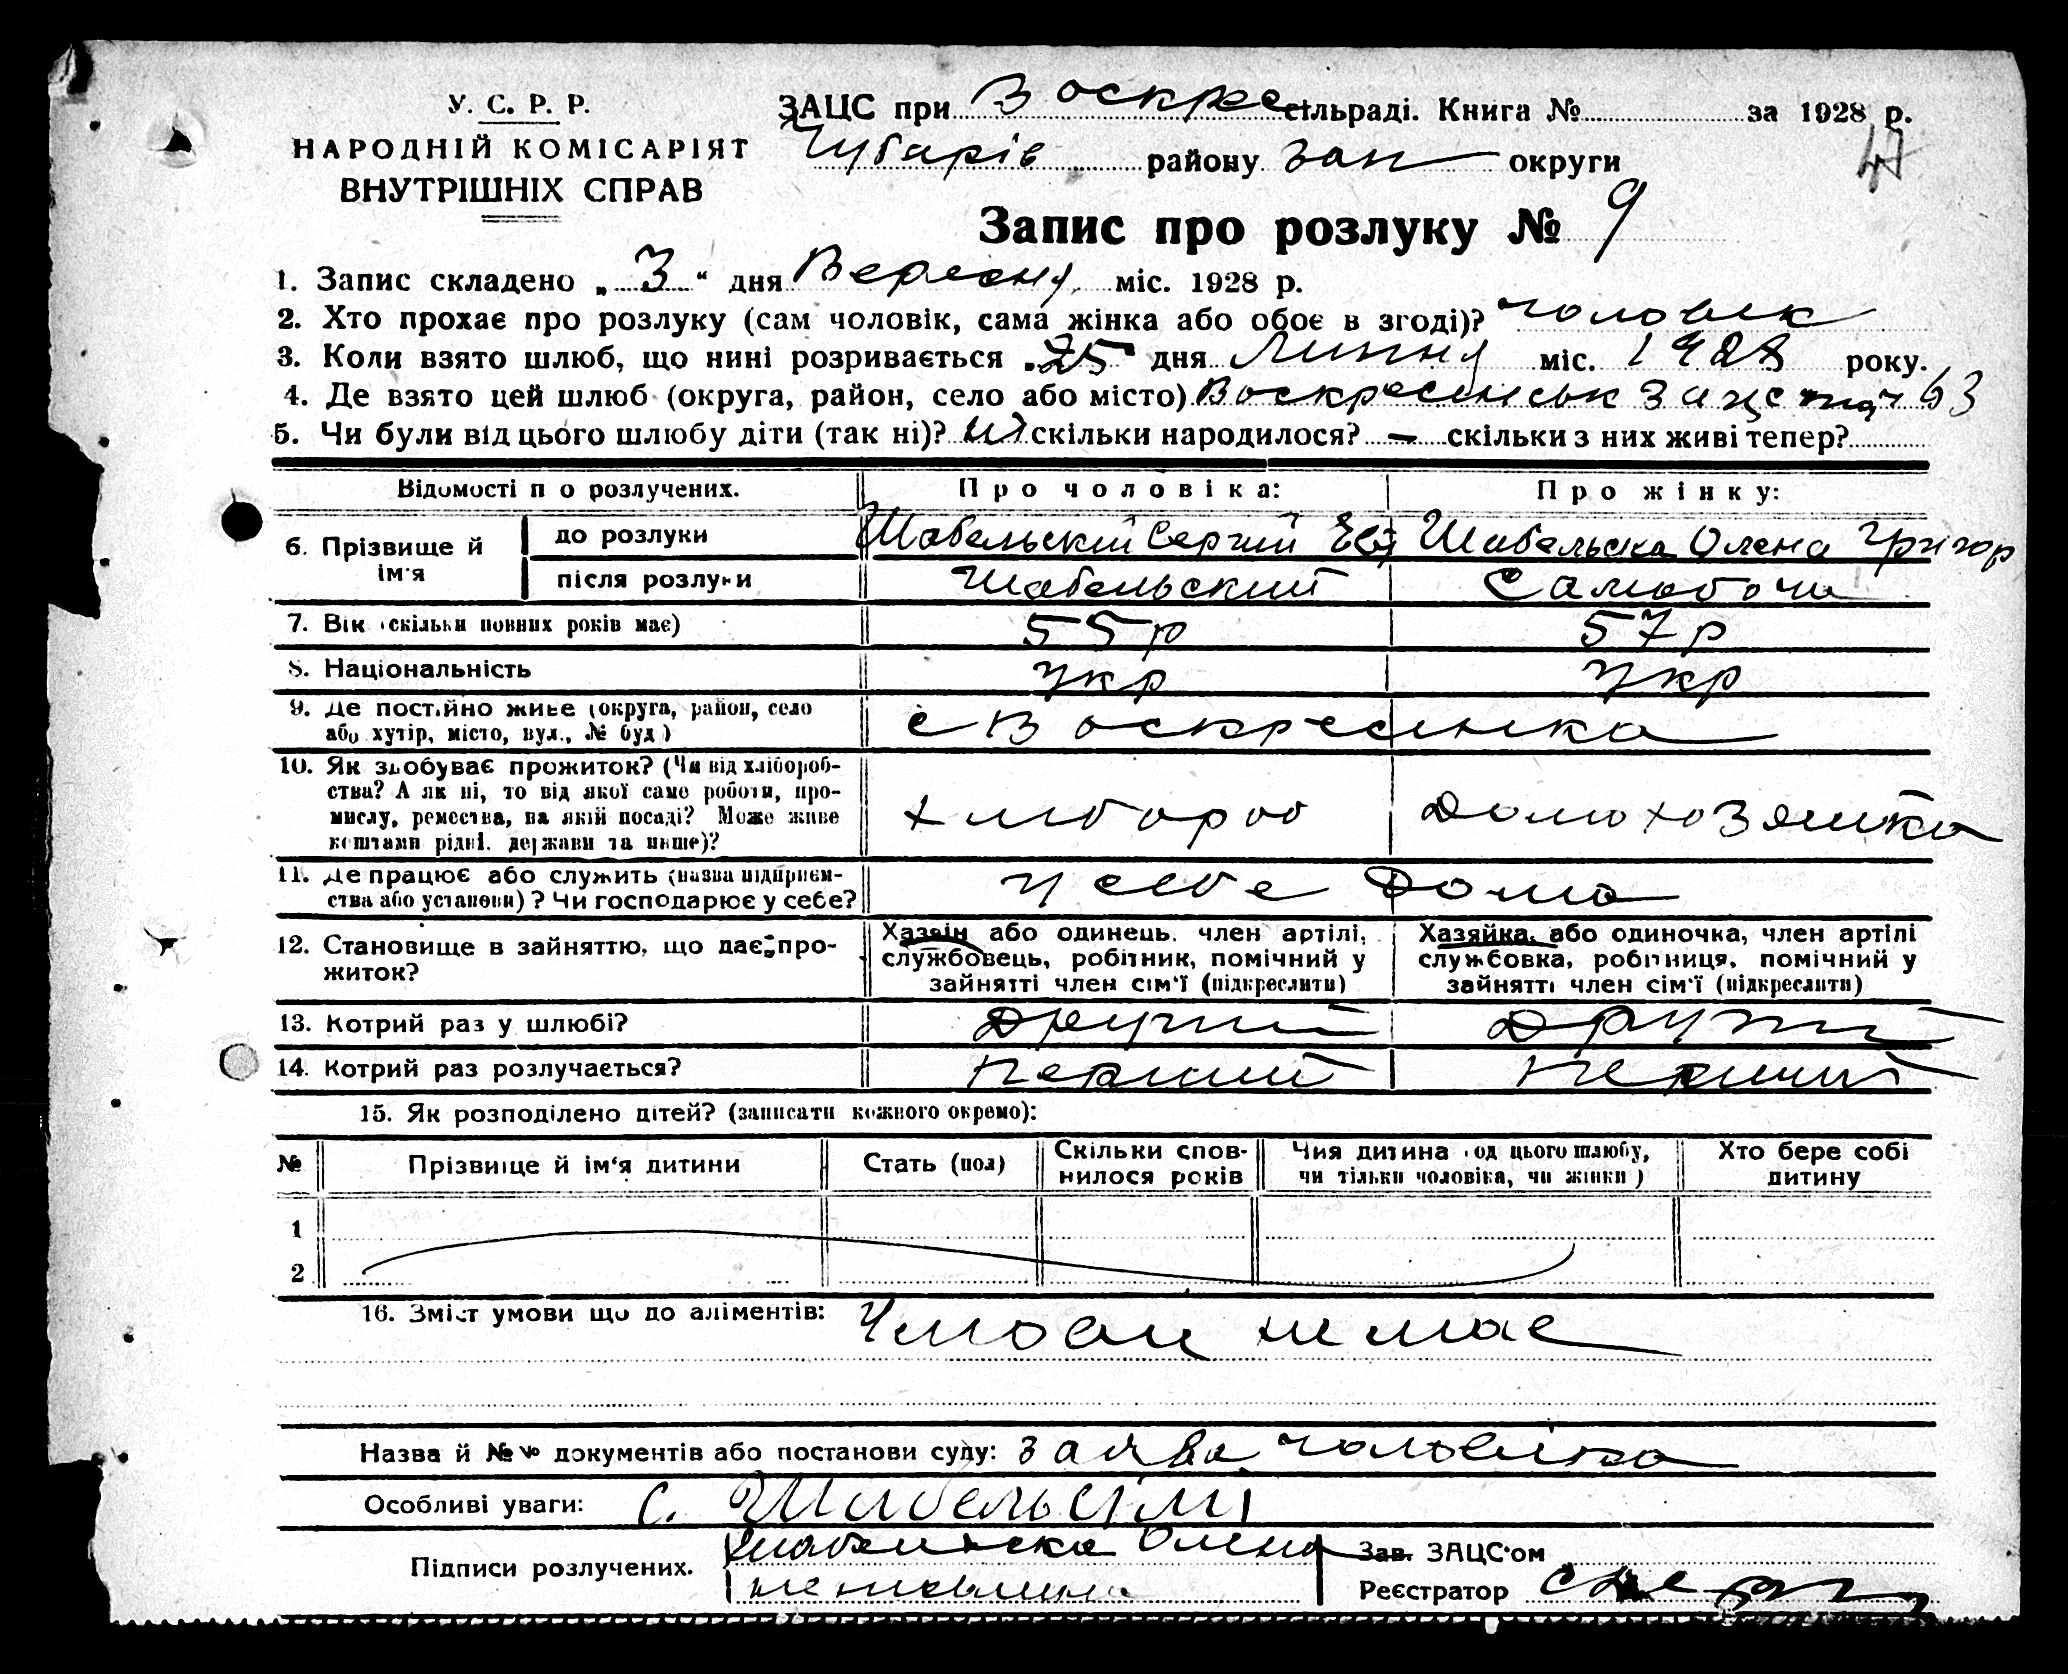 У. С. Р. Р.
НАРОДНІЙ КОМІСАРІЯТ
ВНУТРІШНІХ СПРАВ
ЗАЦС при Воскре сільраді. Книга № за 1928 р.
Чубарів району Зап округи
47
Запис про розлуку № 9
1. Запис складено „ 3 “ дня Вересня міс. 1928 р.
2. Хто прохає про розлуку (сам чоловік, сама жінка або обоє в згоді)? чоловік
3. Коли взято шлюб, що нині розривається „25“ дня Липня міс. 1928 року.
4. Де взято цей шлюб (округа, район, село або місто) Воскресенськ Зацс 63
5. Чи були від цього шлюбу діти (так ні)? ні скільки народилося? — скільки з них живі тепер?
Відомості п о розлучених. Про чоловіка: Про жінку:
6. Прізвище й ім'я
до розлуки Шабельский Сергий Шабельска Олена Григор
після розлуки Шабельский
7. Вік (скільки повних років має) 55 р 57 р
8. Національність Укр Укр
9. Де постійно живе (округа, район, село
або хутір, місто, вул., № буд) с Воскресенка
10. Як здобуває прожиток? (Чи від хлібороб-
ства? А як ні, то від якої саме роботи, про-
мислу, ремества, на якій посаді? Може живе
коштами рідні. держави та инше)?
хлибороб Домохозяйка
11. Де працює або служить (назва підприєм-
ства або установи)? Чи господарює у себе? У себе Дома
12. Становище в зайняттю, що дає про-
житок?
Хазяїн або одинець. член артілі,
службовець, робітник, помічний у
зайнятті член сім'ї (підкреслити)
Хазяйка, або одиночка, член артілі
службовка, робітниця, помічний у
зайнятті член сім'ї (підкреслити)
13. Котрий раз у шлюбі? Другий Другий
14. Котрий раз розлучається? Перший Перший
15. Як розподілено дітей? (записати кожного окремо):
№ Прізвище й ім'я дитини Стать (пол) Скільки спов-
нилося років Чия дитина (од цього шлюбу,
чи тільки чоловіка, чи жінки) Хто бере собі
дитину
1
2
16. Зміст умови що до аліментів: Умови немає
Назва й №№ документів або постанови суду: заява чоловіка
Особливі уваги: С. Шабельсікі
Підписи розлучених. Шабельска Олена
Зав. ЗАЦС'ом
Реєстратор